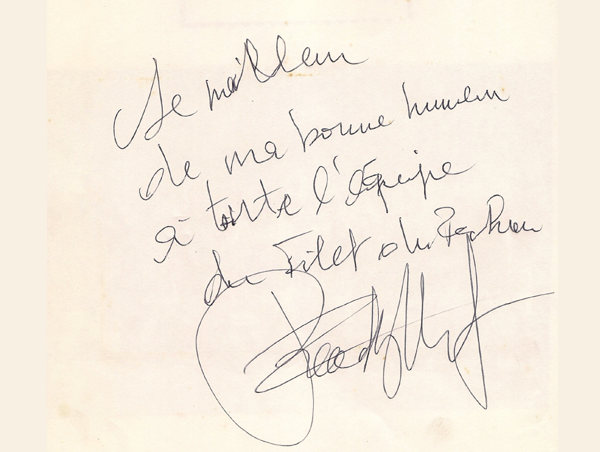 Le meilleur
de ma bonne humeur
à toute l'équipe
du Filet du